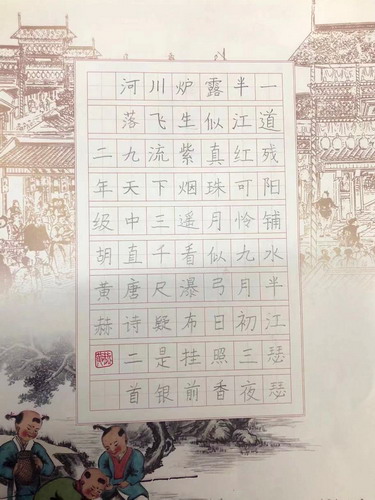 一道残阳铺水半江瑟瑟
半江红可怜九月初三夜
露似真珠月似弓日照香
炉生紫烟遥看瀑布挂前
川飞流下三千尺疑是银
河落九天中直唐诗二首
二年级胡黄赫